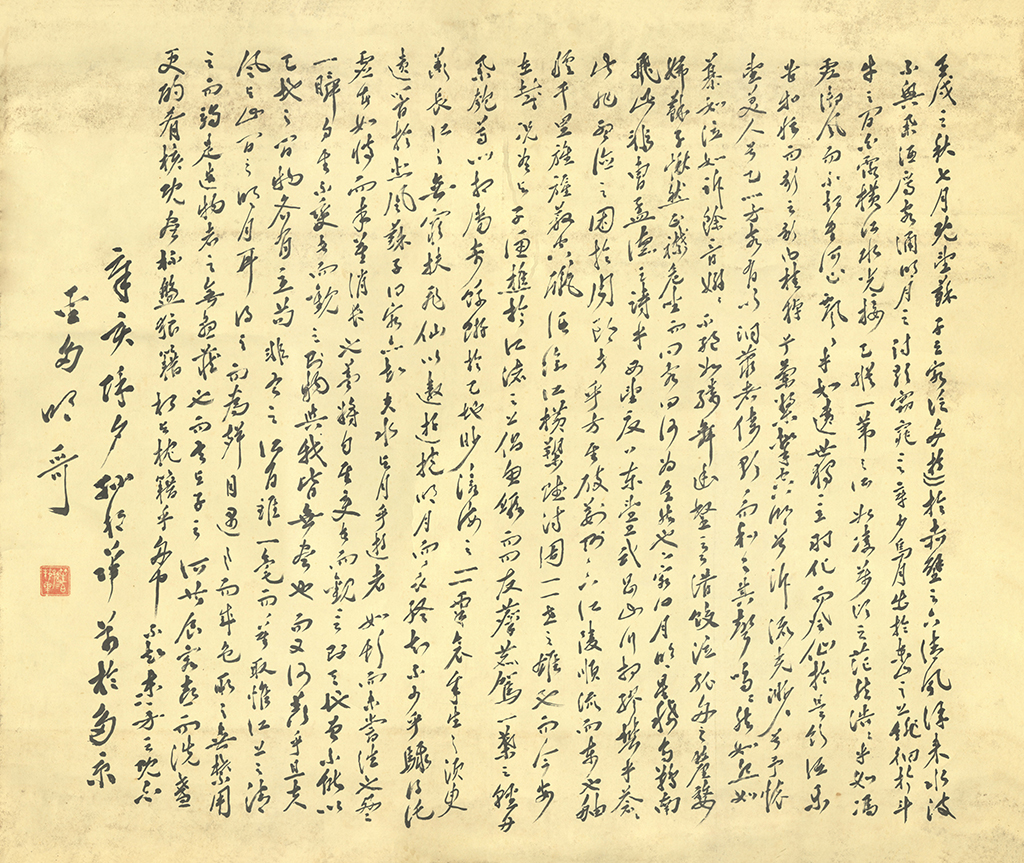 壬戌之秋七月既望蘇子與客泛舟遊於赤壁之下清風徐來水波
不興舉酒屬客誦明月之詩歌窈窕之章少焉月出於東山之上徘徊於斗
牛之間白露橫江水光接天縱一葦之所如凌萬頃之茫然浩浩乎如馮
虛御風而不知其所止飄飄乎如遺世獨立羽化而登仙於是飲酒樂
甚扣舷而歌之歌曰桂棹兮蘭槳擊空明兮泝流光渺渺兮予懷
望美人兮天一方客有吹洞簫者倚歌而和之其聲嗚嗚然如怨如
慕如泣如訴餘音嫋嫋不絕如縷舞幽壑之潛蛟泣孤舟之嫠
婦蘇子愀然正襟危坐而問客曰何為其然也客曰月明星稀烏鵲南
飛此非曹孟德之詩乎西望夏口東望武昌山川相繆鬱乎蒼
此非孟德之困於周郎者乎方其破荊州下江陵順流而東也舳
艫千里旌旗蔽空釃酒臨江橫槊賦詩固一世之雄也而今安
在哉況吾與子漁樵於江渚之上侶魚蝦而友麋鹿駕一葉之輕舟
舉匏尊以相屬寄蜉蝣於天地渺滄海之一粟哀吾生之須臾
羨長江之無窮挾飛仙以遨遊抱明月而長終知不可乎驟得託
遺響於悲風蘇子曰客亦知夫水與月乎逝者如斯而未嘗往也盈
虛者如彼而卒莫消長也蓋將自其變者而觀之則天地曾不能以
一瞬自其不變者而觀之則物與我皆無盡也而又何羨乎且夫
天地之間物各有主苟非吾之所有雖一毫而莫取惟江上之清
風與山間之明月耳得之而為聲目遇之而成色取之無禁用
之而竭是造物者之無盡藏也而吾與子之所共食客喜而洗盞
更酌肴核既盡杯盤狼籍相與枕籍乎舟中不知東方之既白
辛亥除夕